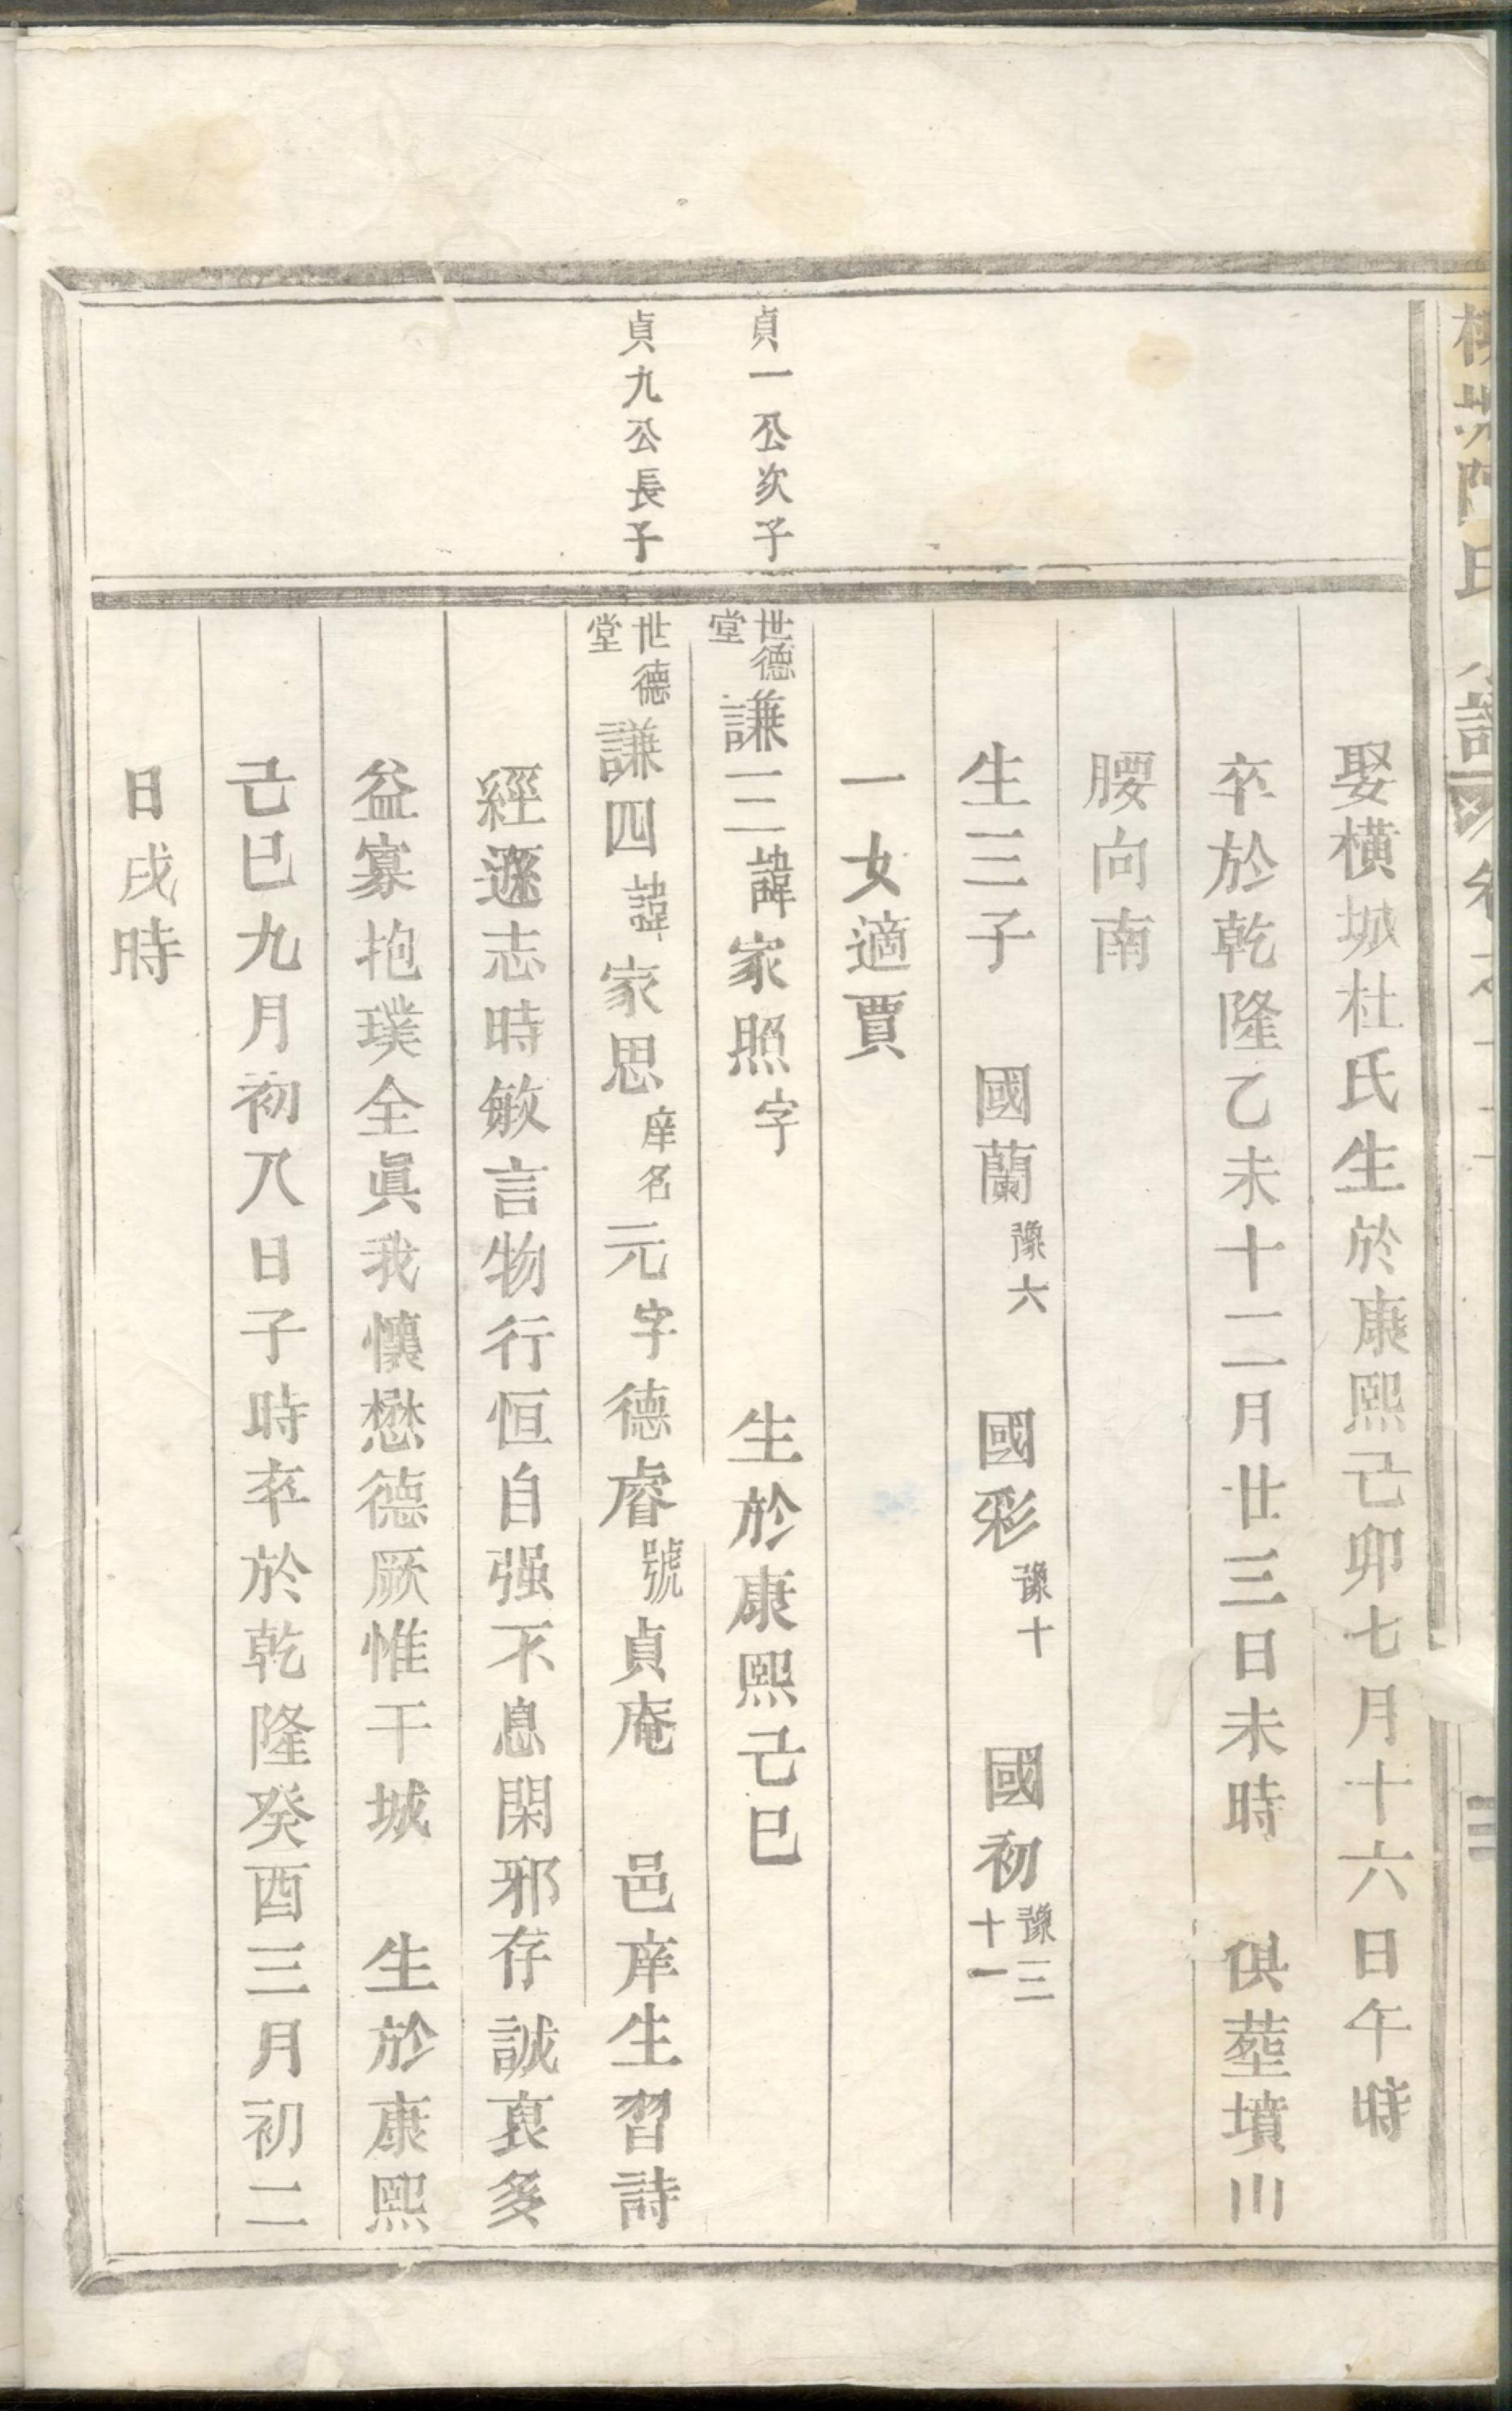 娶橫城杜氏生於康熙己卯七月十六日午時
卒於乾隆乙未十二月廿三日未時　俱塟墳川
腰向南
生三子　國蘭豫六　國彩豫十　國初豫三十一
一女適賈
貞一公次子
世德堂謙三諱家照字　生於康熙己巳
貞九公長子
世德堂謙四諱家思庠名元字德睿號貞庵　邑庠生習詩
經遜志時敏言物行恒自强不息閑邪存誠裒多
益寡抱璞全眞我懷懋德厥惟干城　生於康熙
己巳九月初八日子時卒於乾隆癸酉三月初二
日戌時